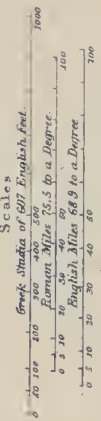 Scales
Greek Stadia of 607 English feet.
0 50 100 200 300 400 500 1000
Roman Miles 75,5 to a Degree.
0 5 10 20 30 40 50 100
English Miles 68 9 to a Degree
0 5 10 20 30 40 50 100